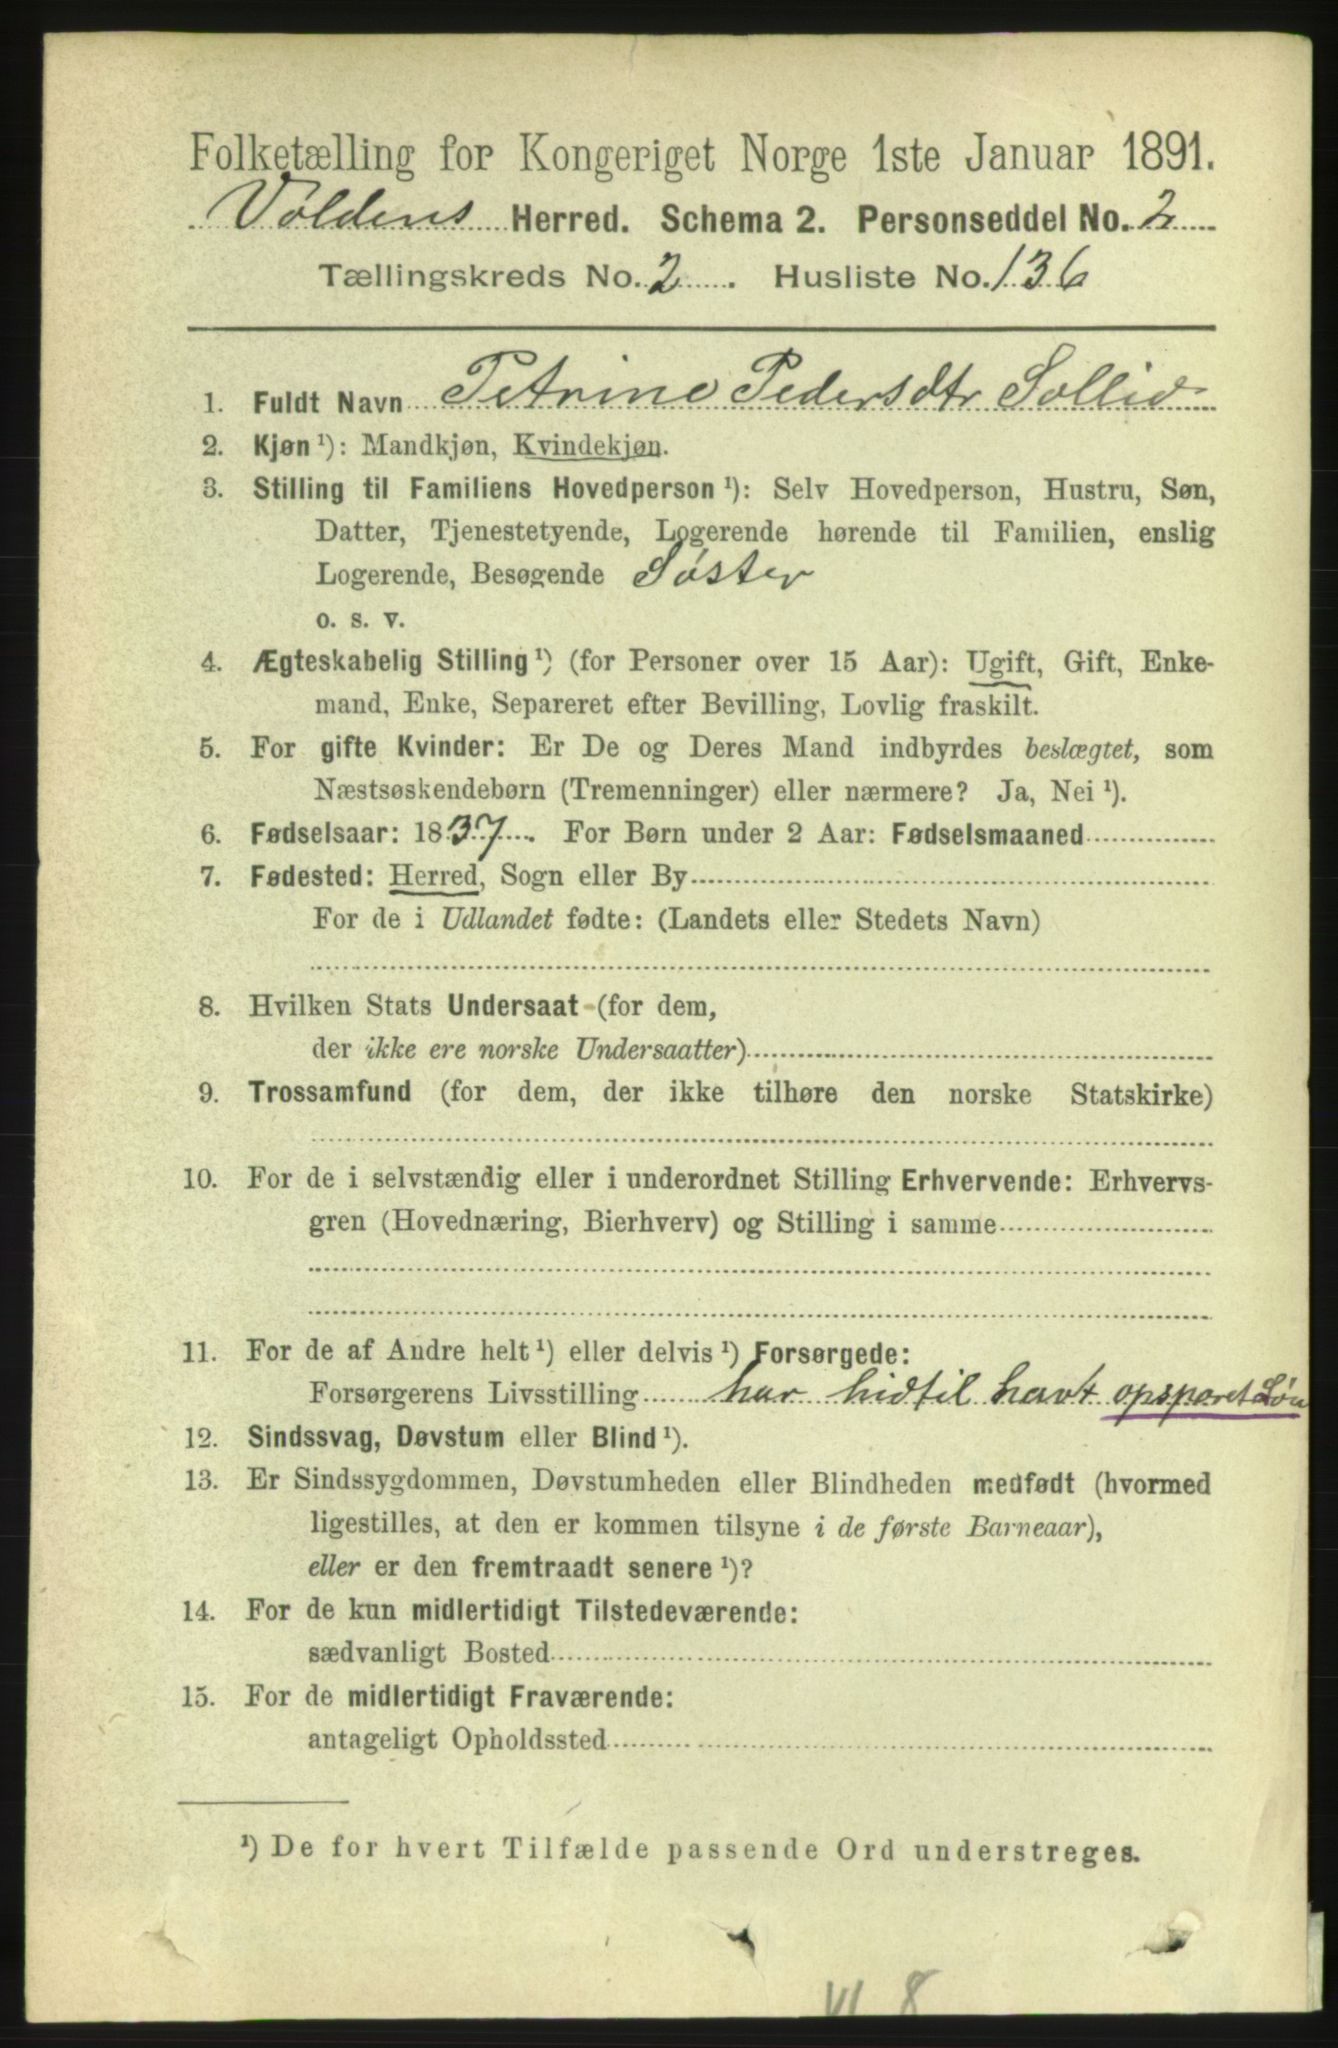 Folketælling for Kongeriget Norge 1ste Januar 1891.
Voldens Herred. Schema 2. Personseddel No. 2
Tællingskreds No. 2. Husliste No. 136
1. Fuldt Navn Petrine Pedersdtr Sollid
2. Kjøn ¹): Mandkjøn, Kvindekjøn.
3. Stilling til Familiens Hovedperson ¹): Selv Hovedperson, Hustru, Søn,
Datter, Tjenestetyende, Logerende hørende til Familien, enslig
Logerende, Besøgende Søster
o. s. v.
4. Ægteskabelig Stilling ¹) (for Personer over 15 Aar): Ugift, Gift, Enke-
mand, Enke, Separeret efter Bevilling, Lovlig fraskilt.
5. For gifte Kvinder: Er De og Deres Mand indbyrdes beslægtet, som
Næstsøskendebørn (Tremenninger) eller nærmere? Ja, Nei ¹).
6. Fødselsaar: 1837. For Børn under 2 Aar: Fødselsmaaned
7. Fødested: Herred, Sogn eller By
For de i Udlandet fødte: (Landets eller Stedets Navn)
8. Hvilken Stats Undersaat (for dem,
der ikke ere norske Undersaatter)
9. Trossamfund (for dem, der ikke tilhøre den norske Statskirke)
10. For de i selvstændig eller i underordnet Stilling Erhvervende: Erhvervs-
gren (Hovednæring, Bierhverv) og Stilling i samme
11. For de af Andre helt ¹) eller delvis ¹) Forsørgede:
Forsørgerens Livsstilling har hidtil havt opsparet Løn
12. Sindssvag, Døvstum eller Blind ¹).
13. Er Sindssygdommen, Døvstumheden eller Blindheden medfødt (hvormed
ligestilles, at den er kommen tilsyne i de første Barneaar),
eller er den fremtraadt senere ¹)?
14. For de kun midlertidigt Tilstedeværende:
sædvanligt Bosted
15. For de midlertidigt Fraværende:
antageligt Opholdssted
¹) De for hvert Tilfælde passende Ord understreges.
VI 8